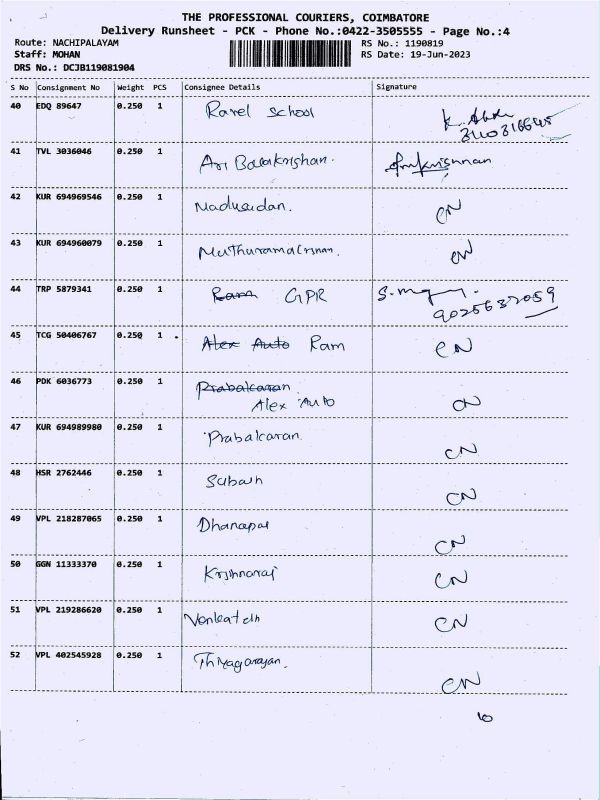 THE PROFESSIONAL COURIERS, COIMBATORE
Delivery Runsheet - PCK - Phone No.:0422-3505555 - Page No.:4
Route: NACHIPALAYAM RS No.: 1190819
Staff: MOHAN RS Date: 19-Jun-2023
DRS No.: DCJB119081904
S No Consignment No Weight PCS Consignee Details Signature
40 EDQ 89647 0.250 1 Ravel school
41 TVL 3036046 0.250 1 Ari Balakrishan.
42 KUR 694969546 0.250 1 Madusudan. CN
43 KUR 694960079 0.250 1 CN
44 TRP 5879341 0.250 1 Ram GPR 9025637059
45 TCG 50406767 0.250 1 Alex Auto Ram CN
46 PDK 6036773 0.250 1 Prabakaran CN
Alex Auto
47 KUR 694989980 0.250 1 Prabakaran CN
48 HSR 2762446 0.250 1 Subash CN
49 VPL 218287065 0.250 1 Dhanapal CN
50 GGN 11333370 0.250 1 Krishnaraj CN
51 VPL 219286620 0.250 1 CN
52 VPL 402545928 0.250 1 Thiyagarajan. CN
10